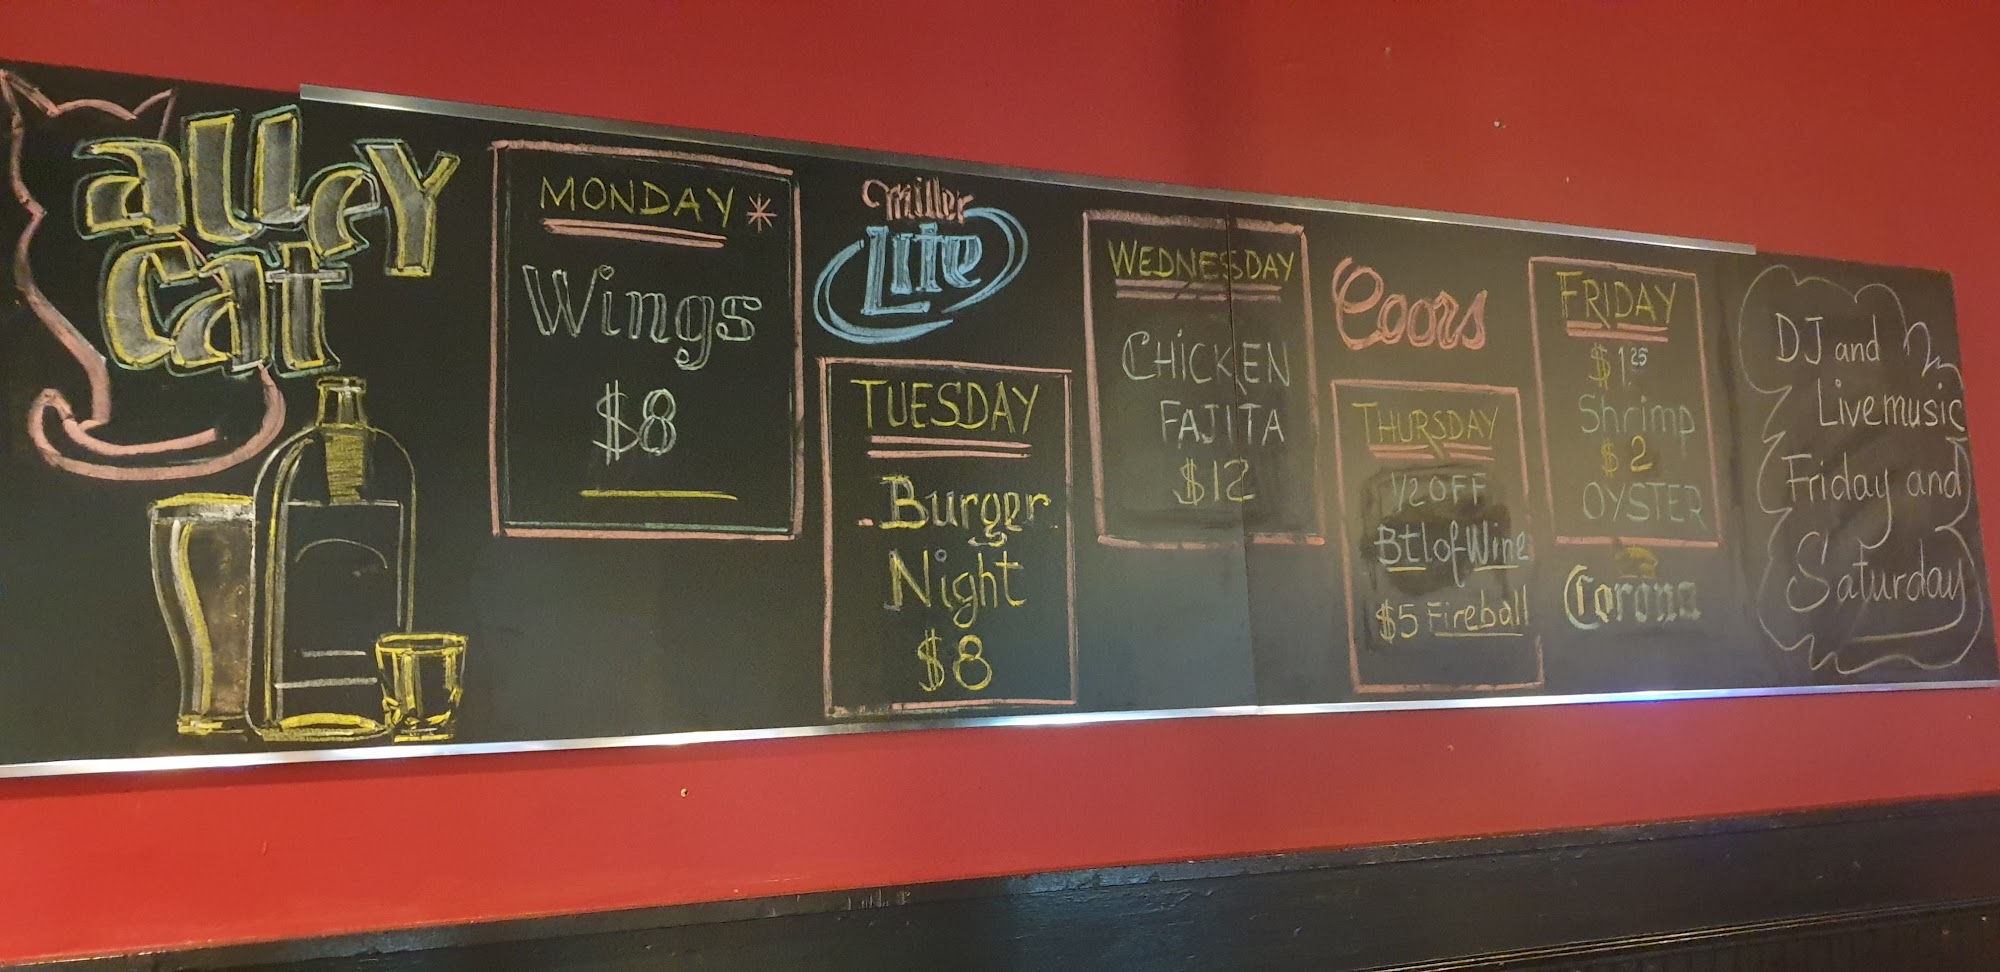 alley
cat
MONDAY *
Wings
$8
Miller
Lite
TUESDAY
Burger
Night
$8
WEDNESDAY
CHICKEN
FAJITA
$12
Coors
THURSDAY
1/2 OFF
Btl of Wine
$5 Fireball
FRIDAY
$1.25
Shrimp
$2
OYSTER
Corona
DJ and
Live music
Friday and
Saturday